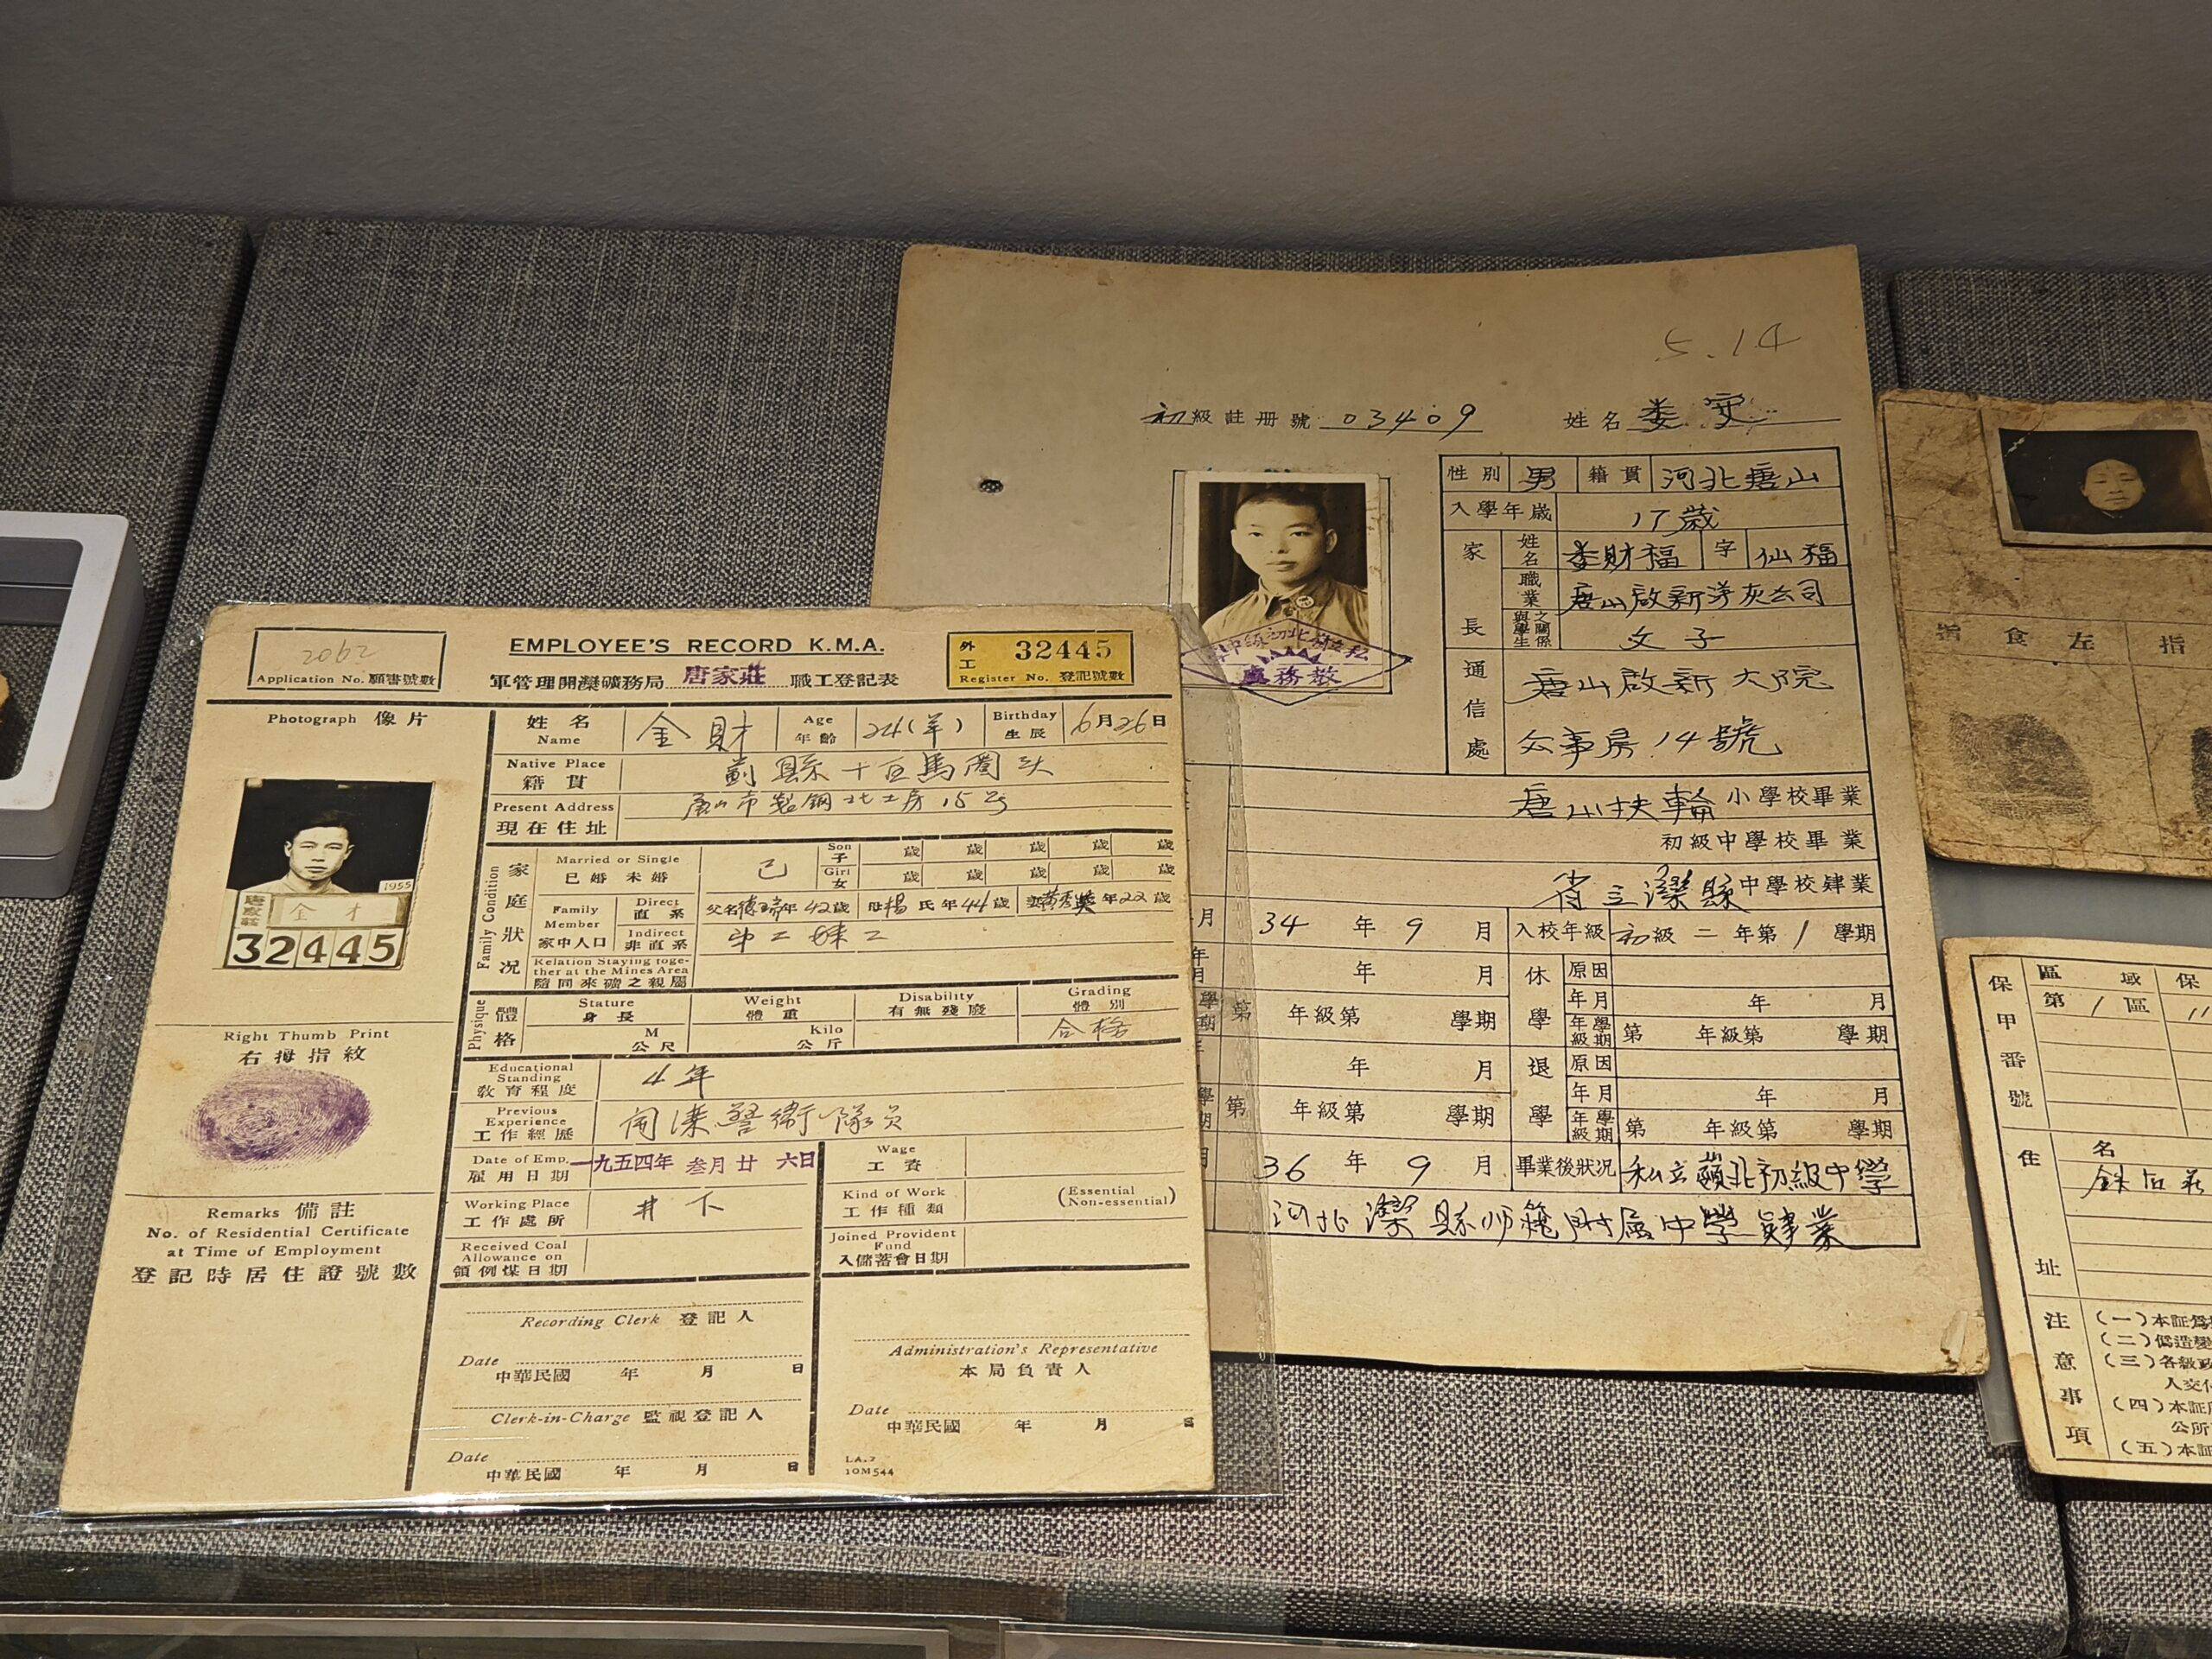 2062
Application No. 願書號數
EMPLOYEE'S RECORD K.M.A.
軍管理開灤礦務局 唐家莊 職工登記表
外工 32445
Register No. 登記號數
Photograph 像片
1955
唐家莊 金才
32445
Right Thumb Print
右拇指紋
Remarks 備註
No. of Residential Certificate
at Time of Employment
登記時居住證號數
姓名 Name 金財 Age 年齡 24(羊) Birthday 生辰 6月26日
Native Place 籍貫 薊縣十百馬圈头
Present Address 現在住址 唐山市製鋼北工房15号
Family Condition 家庭狀况
Married or Single 已婚未婚 已 Son 子 歲 歲 歲 歲 歲
Girl 女 歲 歲 歲 歲 歲
Family Member 家中人口 Direct 直系 父名 年42歲 母楊氏年44歲 妻 年22歲
Indirect 非直系 妹二
Relation Staying together at the Mines Area
隨同來礦之親屬
Physique 體格
Stature 身長 M 公尺 Weight 體重 Kilo 公斤 Disability 有無殘廢 Grading 體別 合格
Educational Standing 教育程度 4年
Previous Experience 工作經歷 開滦警衛隊员
Date of Emp. 雇用日期 一九五四年叁月廿六日 Wage 工資
Working Place 工作處所 井下 Kind of Work 工作種類 (Essential Non-essential)
Received Coal Allowance on 領例煤日期 Joined Provident Fund 入儲蓄會日期
Recording Clerk 登記人
Date 中華民國 年 月 日
Clerk-in-Charge 監視登記人
Date 中華民國 年 月 日
Administration's Representative
本局負責人
Date 中華民國 年 月 日
LA.7
10M544
5.14
初級註册號 03409 姓名 娄
教務處
性別 男 籍貫 河北唐山
入學年歲 17歲
家長 姓名 娄財福 字 仙福
職業 唐山啟新洋灰公司
與學生之關係 父子
通信處 唐山啟新大院
公事房14號
唐山扶輪小學校畢業
初級中學校畢業
省立灤縣中學校肄業
月 34年9月 入校年級 初級二年第1學期
年月 年 月 休學 原因
年月 年 月
學期 第 年級第 學期 年級學期 第 年級第 學期
年 月 退學 原因
年月 年 月
學期 第 年級第 學期 年級學期 第 年級第 學期
月 36年9月 畢業後狀况 私立蘋北初級中學
河北灤縣師範附属中學肄業
指食左 指
保甲番號 區域 保
第1區 11
住址 名
注意事項
(一)本証爲
(二)僞造變
(三)各級政
人交付
(四)本証
公所
(五)本証